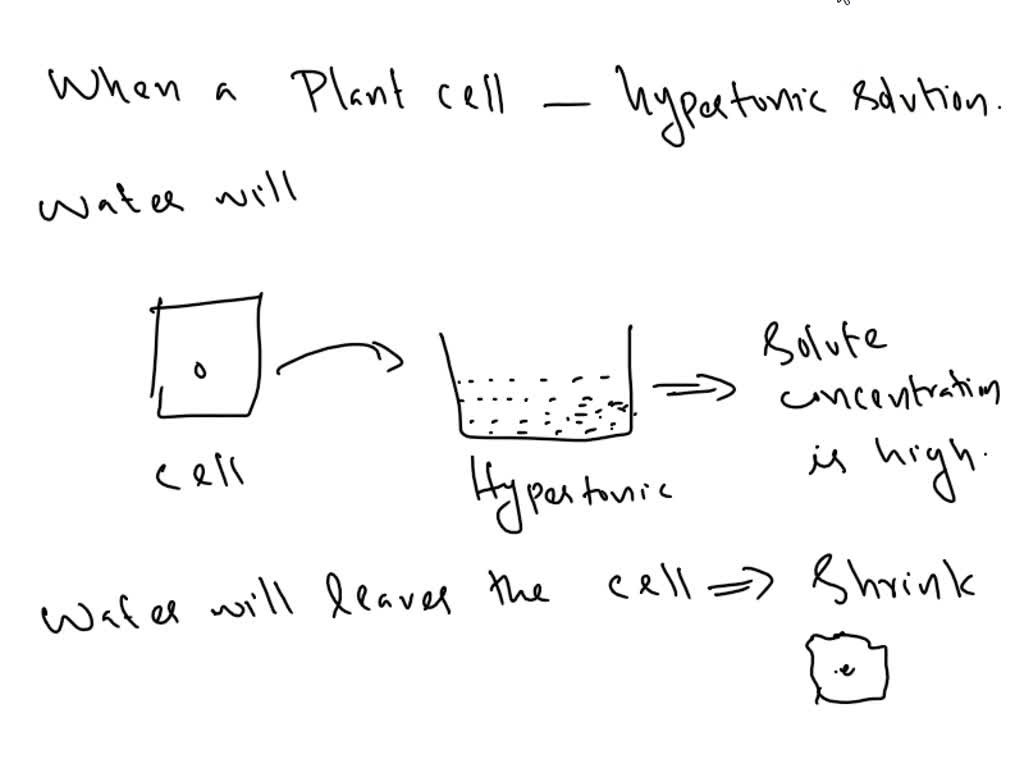 When a Plant cell — hypertonic solution.
water will
Solute
concentration
is high.
cell
Hypertonic
water will leaves the cell ⇒ Shrink